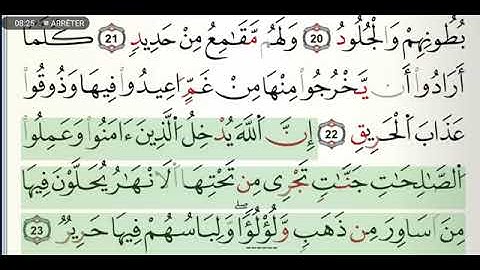 08:25 ARRÊTER
بُطُونِهِمْ وَالْجُلُودُ 20 وَلَهُم مَّقَٰمِعُ مِنْ حَدِيدٍ 21 كُلَّمَا
أَرَادُوا أَن يَّخْرُجُوا مِنْهَا مِنْ غَمٍّ اعِيدُوا فِيهَا وَذُوقُوا
عَذَابَ الْحَرِيقِ 22 إِنَّ اللَّهَ يُدْخِلُ الَّذِينَ ءَامَنُوا وَعَمِلُوا
الصَّٰلِحَٰتِ جَنَّٰتٍ تَجْرِي مِن تَحْتِهَا الَانْهَٰرُ يُحَلَّوْنَ فِيهَا
مِنَ اسَاوِرَ مِن ذَهَبٍ وَلُؤْلُؤًا وَلِبَاسُهُمْ فِيهَا حَرِيرٌ 23